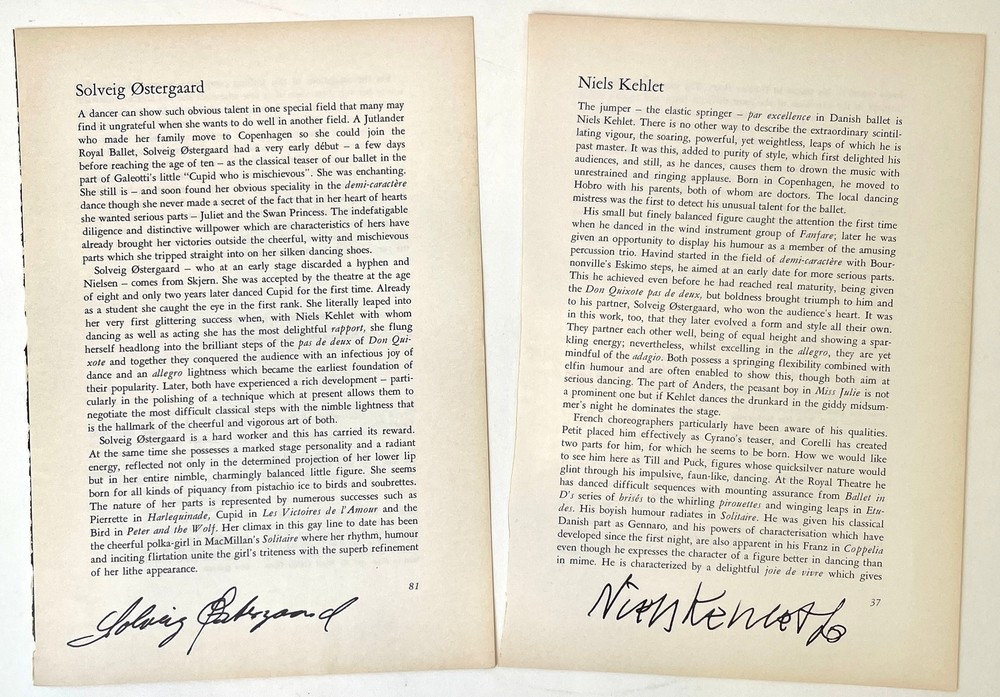 Solveig Østergaard
A dancer can show such obvious talent in one special field that many may
find it ungrateful when she wants to do well in another field. A Jutlander
who made her family move to Copenhagen so she could join the
Royal Ballet, Solveig Østergaard had a very early début – a few days
before reaching the age of ten – as the classical teaser of our ballet in the
part of Galeotti's little "Cupid who is mischievous". She was enchanting.
She still is – and soon found her obvious speciality in the demi-caractère
dance though she never made a secret of the fact that in her heart of hearts
she wanted serious parts – Juliet and the Swan Princess. The indefatigable
diligence and distinctive willpower which are characteristics of hers have
already brought her victories outside the cheerful, witty and mischievous
parts which she tripped straight into on her silken dancing shoes.
Solveig Østergaard – who at an early stage discarded a hyphen and
Nielsen – comes from Skjern. She was accepted by the theatre at the age
of eight and only two years later danced Cupid for the first time. Already
as a student she caught the eye in the first rank. She literally leaped into
her very first glittering success when, with Niels Kehlet with whom
dancing as well as acting she has the most delightful rapport, she flung
herself headlong into the brilliant steps of the pas de deux of Don Qui-
xote and together they conquered the audience with an infectious joy of
dance and an allegro lightness which became the earliest foundation of
their popularity. Later, both have experienced a rich development – parti-
cularly in the polishing of a technique which at present allows them to
negotiate the most difficult classical steps with the nimble lightness that
is the hallmark of the cheerful and vigorous art of both.
Solveig Østergaard is a hard worker and this has carried its reward.
At the same time she possesses a marked stage personality and a radiant
energy, reflected not only in the determined projection of her lower lip
but in her entire nimble, charmingly balanced little figure. She seems
born for all kinds of piquancy from pistachio ice to birds and soubrettes.
The nature of her parts is represented by numerous successes such as
Pierrette in Harlequinade, Cupid in Les Victoires de l'Amour and the
Bird in Peter and the Wolf. Her climax in this gay line to date has been
the cheerful polka-girl in MacMillan's Solitaire where her rhythm, humour
and inciting flirtation unite the girl's triteness with the superb refinement
of her lithe appearance.
81
Solveig Østergaard
Niels Kehlet
The jumper – the elastic springer – par excellence in Danish ballet is
Niels Kehlet. There is no other way to describe the extraordinary scintil-
lating vigour, the soaring, powerful, yet weightless, leaps of which he is
past master. It was this, added to purity of style, which first delighted his
audiences, and still, as he dances, causes them to drown the music with
unrestrained and ringing applause. Born in Copenhagen, he moved to
Hobro with his parents, both of whom are doctors. The local dancing
mistress was the first to detect his unusual talent for the ballet.
His small but finely balanced figure caught the attention the first time
when he danced in the wind instrument group of Fanfare; later he was
given an opportunity to display his humour as a member of the amusing
percussion trio. Havind started in the field of demi-caractère with Bour-
nonville's Eskimo steps, he aimed at an early date for more serious parts.
This he achieved even before he had reached real maturity, being given
the Don Quixote pas de deux, but boldness brought triumph to him and
to his partner, Solveig Østergaard, who won the audience's heart. It was
in this work, too, that they later evolved a form and style all their own.
They partner each other well, being of equal height and showing a spar-
kling energy; nevertheless, whilst excelling in the allegro, they are yet
mindful of the adagio. Both possess a springing flexibility combined with
elfin humour and are often enabled to show this, though both aim at
serious dancing. The part of Anders, the peasant boy in Miss Julie is not
a prominent one but if Kehlet dances the drunkard in the giddy midsum-
mer's night he dominates the stage.
French choreographers particularly have been aware of his qualities.
Petit placed him effectively as Cyrano's teaser, and Corelli has created
two parts for him, for which he seems to be born. How we would like
to see him here as Till and Puck, figures whose quicksilver nature would
glint through his impulsive, faun-like, dancing. At the Royal Theatre he
has danced difficult sequences with mounting assurance from Ballet in
D's series of brisés to the whirling pirouettes and winging leaps in Etu-
des. His boyish humour radiates in Solitaire. He was given his classical
Danish part as Gennaro, and his powers of characterisation which have
developed since the first night, are also apparent in his Franz in Coppelia
even though he expresses the character of a figure better in dancing than
in mime. He is characterized by a delightful joie de vivre which gives
37
Niels Kehlet